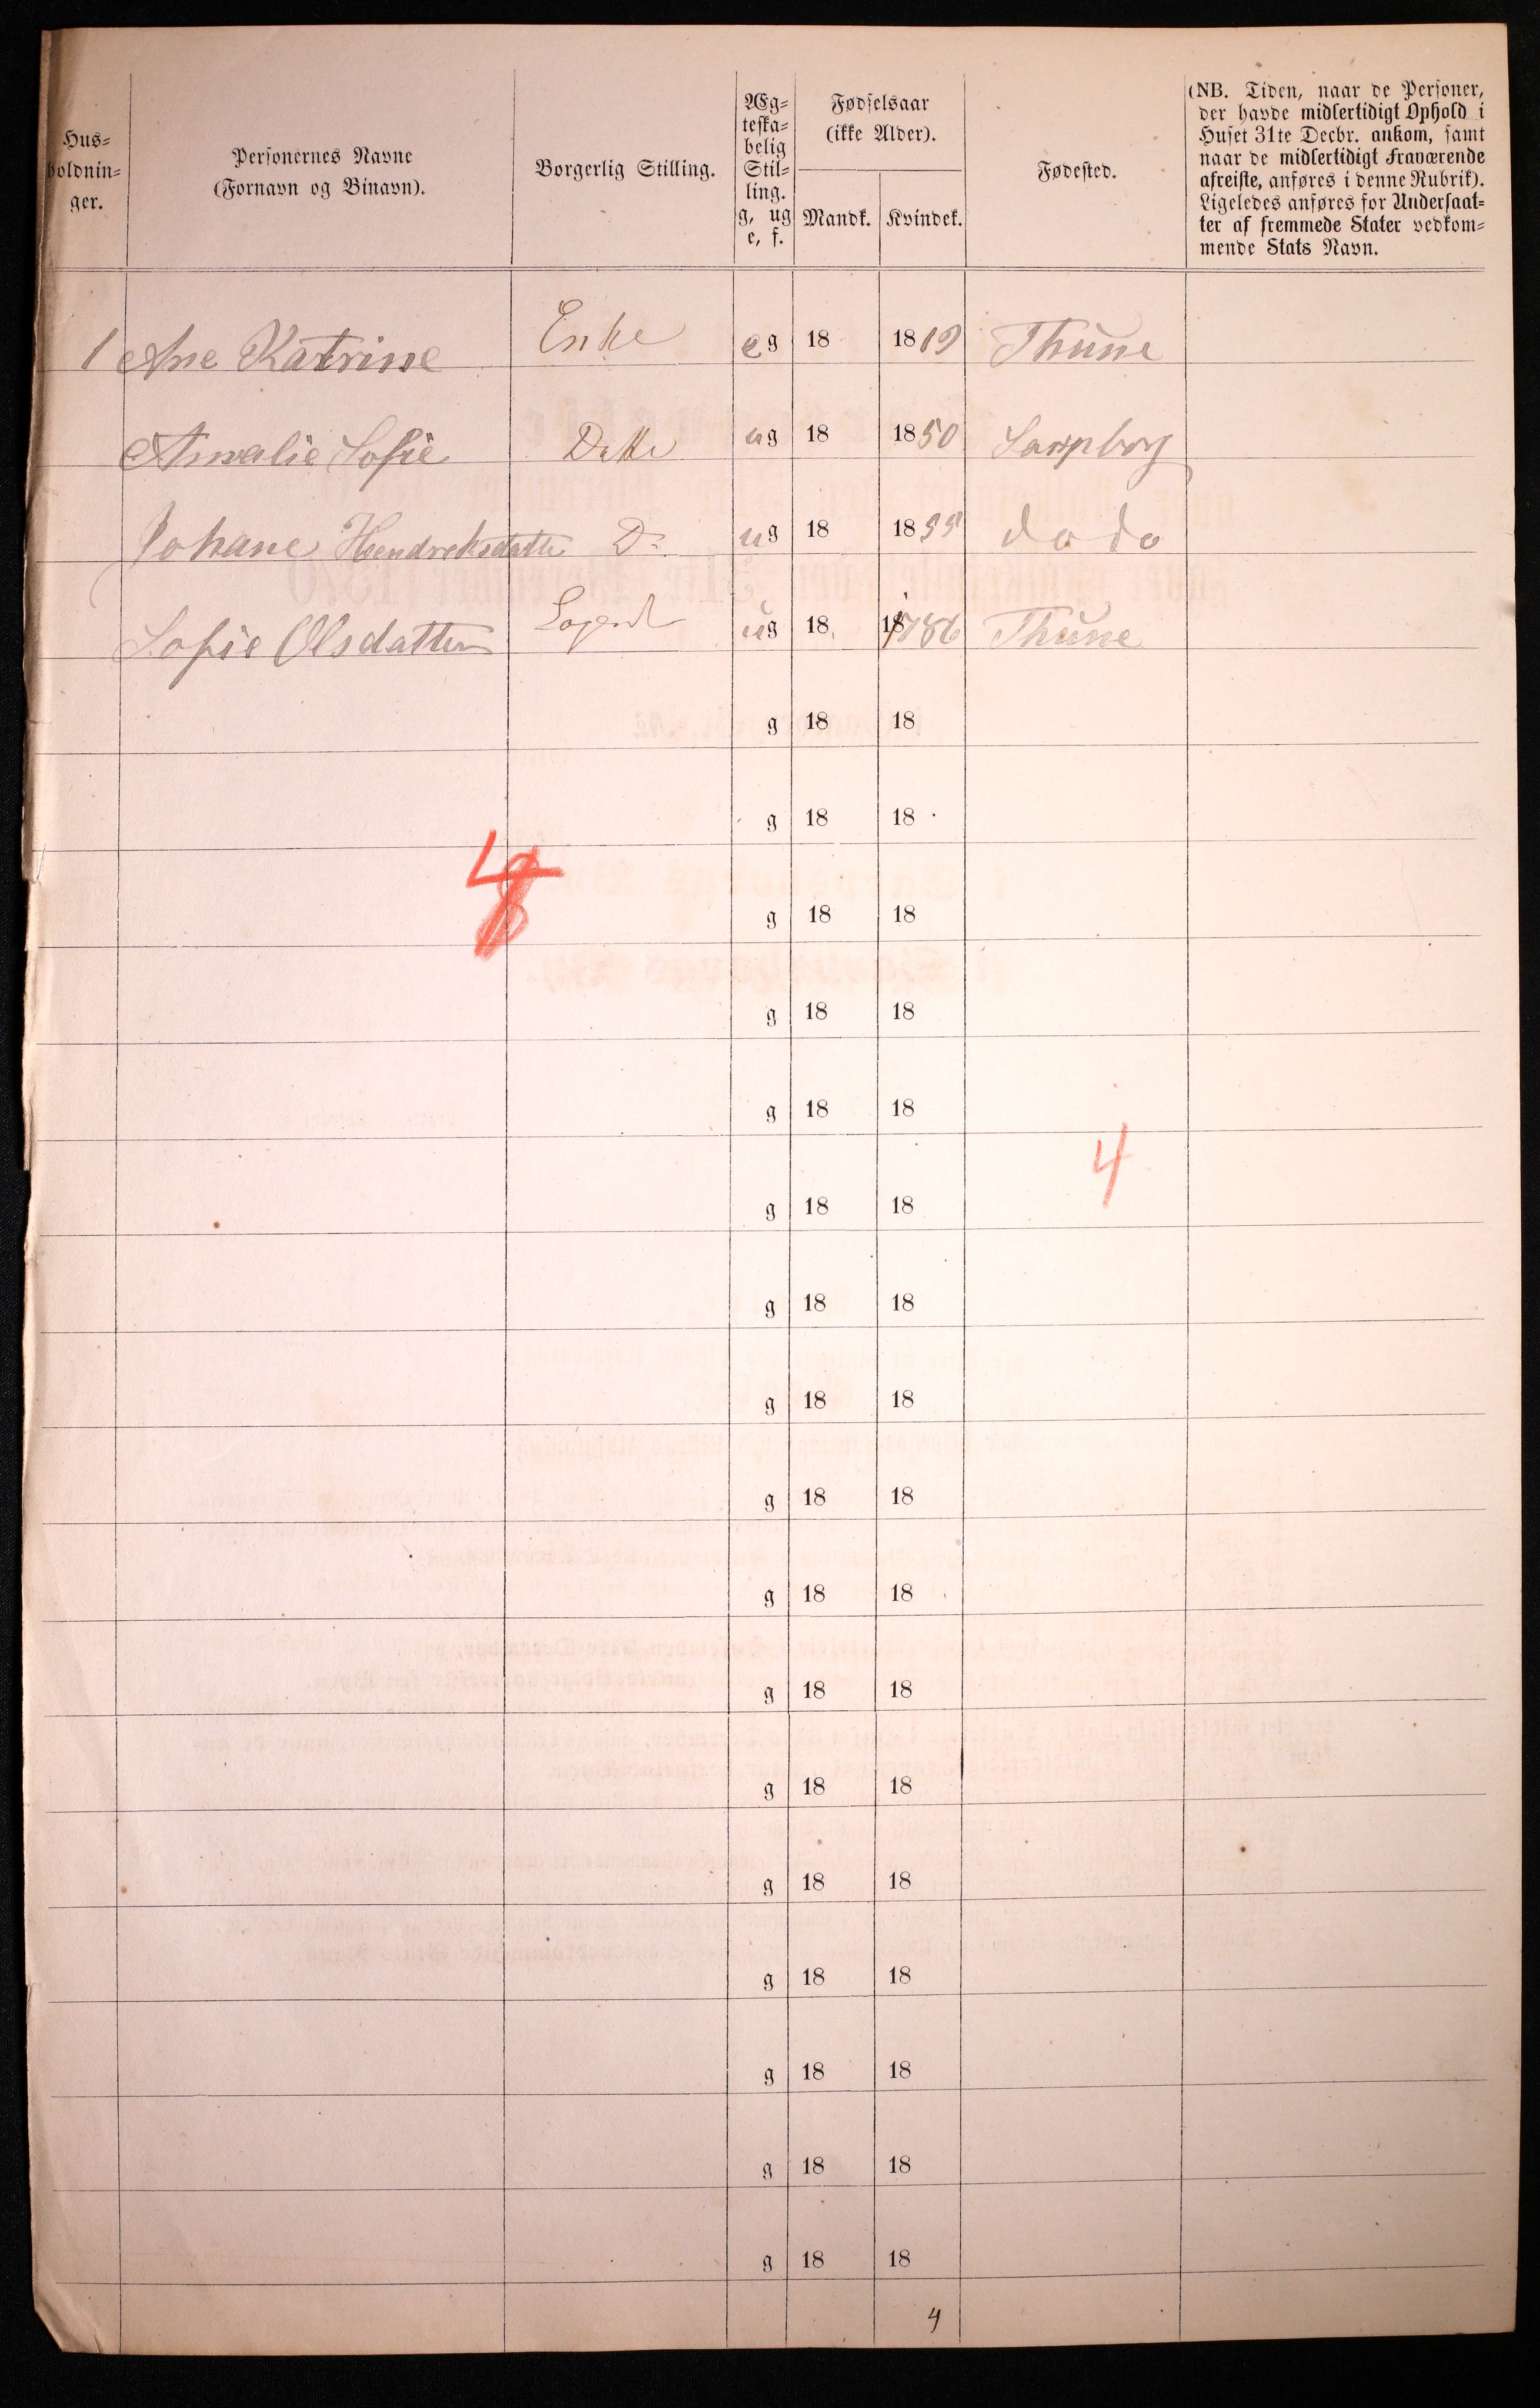 Hus=
holdnin=
ger.
Personernes Navne
(Fornavn og Binavn).
Borgerlig Stilling.
Æg=
teska=
belig
Stil=
ling.
g, ug
e, f.
Fødselsaar
(ikke Alder).
Mandk. Kvindek.
Fødested.
(NB. Tiden, naar de Personer,
der havde midlertidigt Ophold i
Huset 31te Decbr. ankom, samt
naar de midlertidigt Fraværende
afreiste, anføres i denne Rubrik).
Ligeledes anføres for Undersaat=
ter af fremmede Stater vedkom=
mende Stats Navn.
1 Ane Katrine Enke eg 18 1819 Thune
Amalie Sofie Datte ug 18 1850 Sarpborg
Johane Hendreksdatte Do ug 18 1855 do do
Sofie Olsdatter Logerd ug 18 1786 Thune
g 18 18
g 18 18
4
g 18 18
g 18 18
g 18 18
4
g 18 18
g 18 18
g 18 18
g 18 18
g 18 18
g 18 18
g 18 18
g 18 18
g 18 18
g 18 18
g 18 18
g 18 18
4